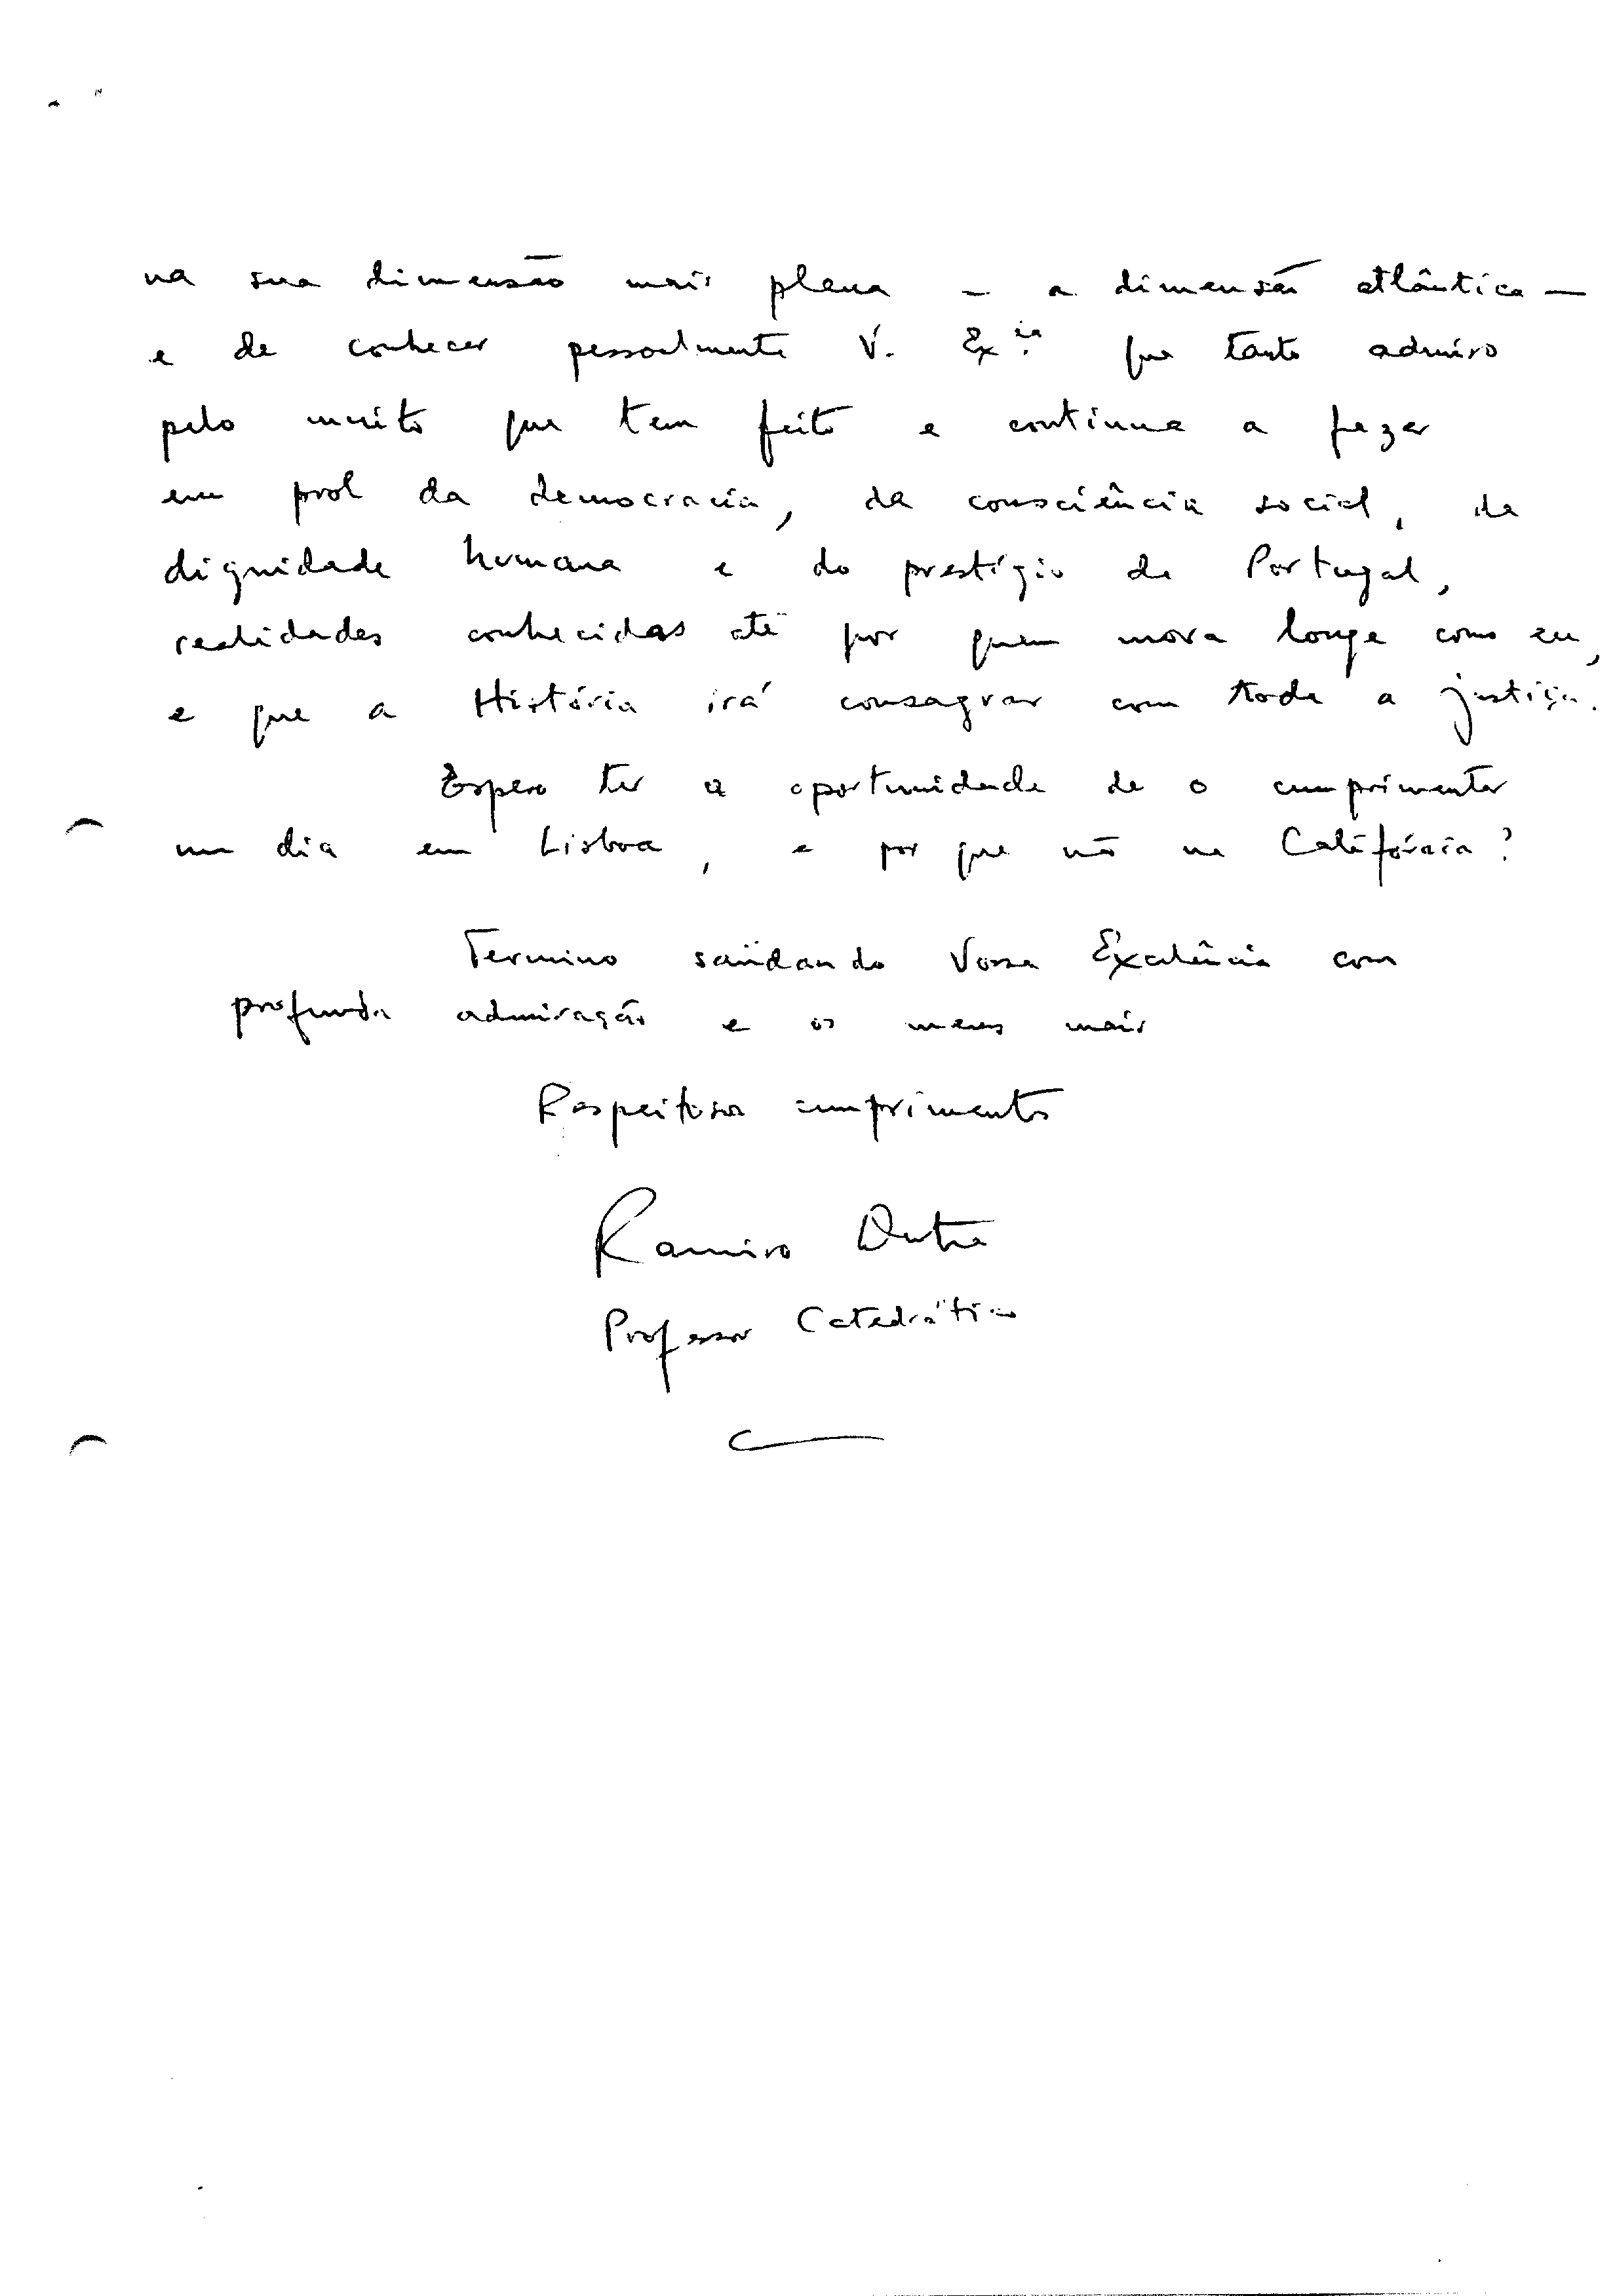 na sua dimensão mais plena – a dimensão atlântica –
e de conhecer pessoalmente V. Ex.ia que tanto admiro
pelo muito que tem feito e continua a fazer
em prol da democracia, da consciência social, da
dignidade humana e do prestígio de Portugal,
realidades conhecidas até por quem mora longe como eu,
e que a História irá consagrar com toda a justiça.
Espero ter a oportunidade de o cumprimentar
um dia em Lisboa, e por que não na Califórnia?
Termino saüdando Vossa Excelência com
profunda admiração e os meus mais
Respeitosos cumprimentos
Ramiro Dutra
Professor Catedrático